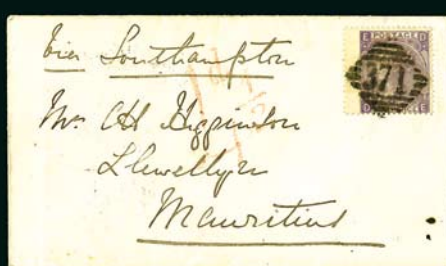 via Southampton
Mrs CH Higginson
Llewellyn
Mauritius
E POSTAGE D
371
D E